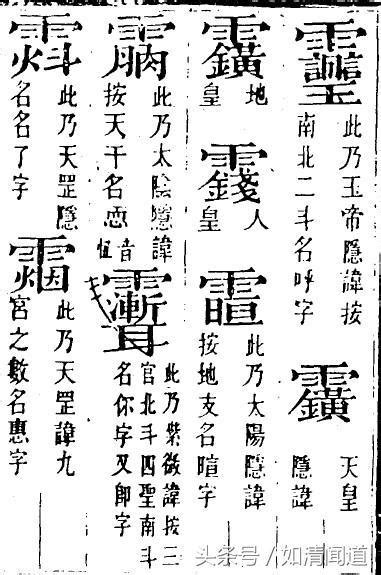 此乃玉帝隱諱按
南北二斗名呼字
天皇
隱諱
地
皇
人
皇
此乃太陽隱諱
按地支名暄字
此乃太陰隱諱
按天干名恧
音
此乃紫微諱按三
官北斗四聖南斗
名你字又即字
此乃天罡隱
名名了字
此乃天罡諱九
宮之數名惠字
头条号 / 如清闻道